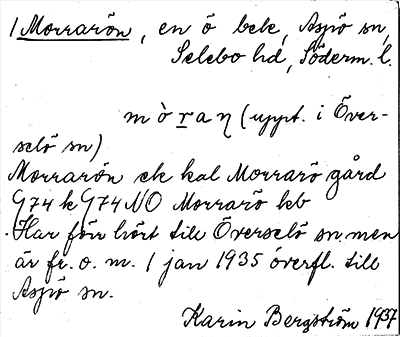 1 Morrarön, en ö bek, Aspö sn,
Selebo hd, Söderm. l.
m ò r a ɳ (uppt. i Över-
selö sn)
Morrarön ek kal Morrarö gård
G74 k G74 NO Morrarö kb
Har förr hört till Överselö sn men
är fr. o. m. 1 jan 1935 överfl. till
Aspö sn.
Karin Bergström 1937